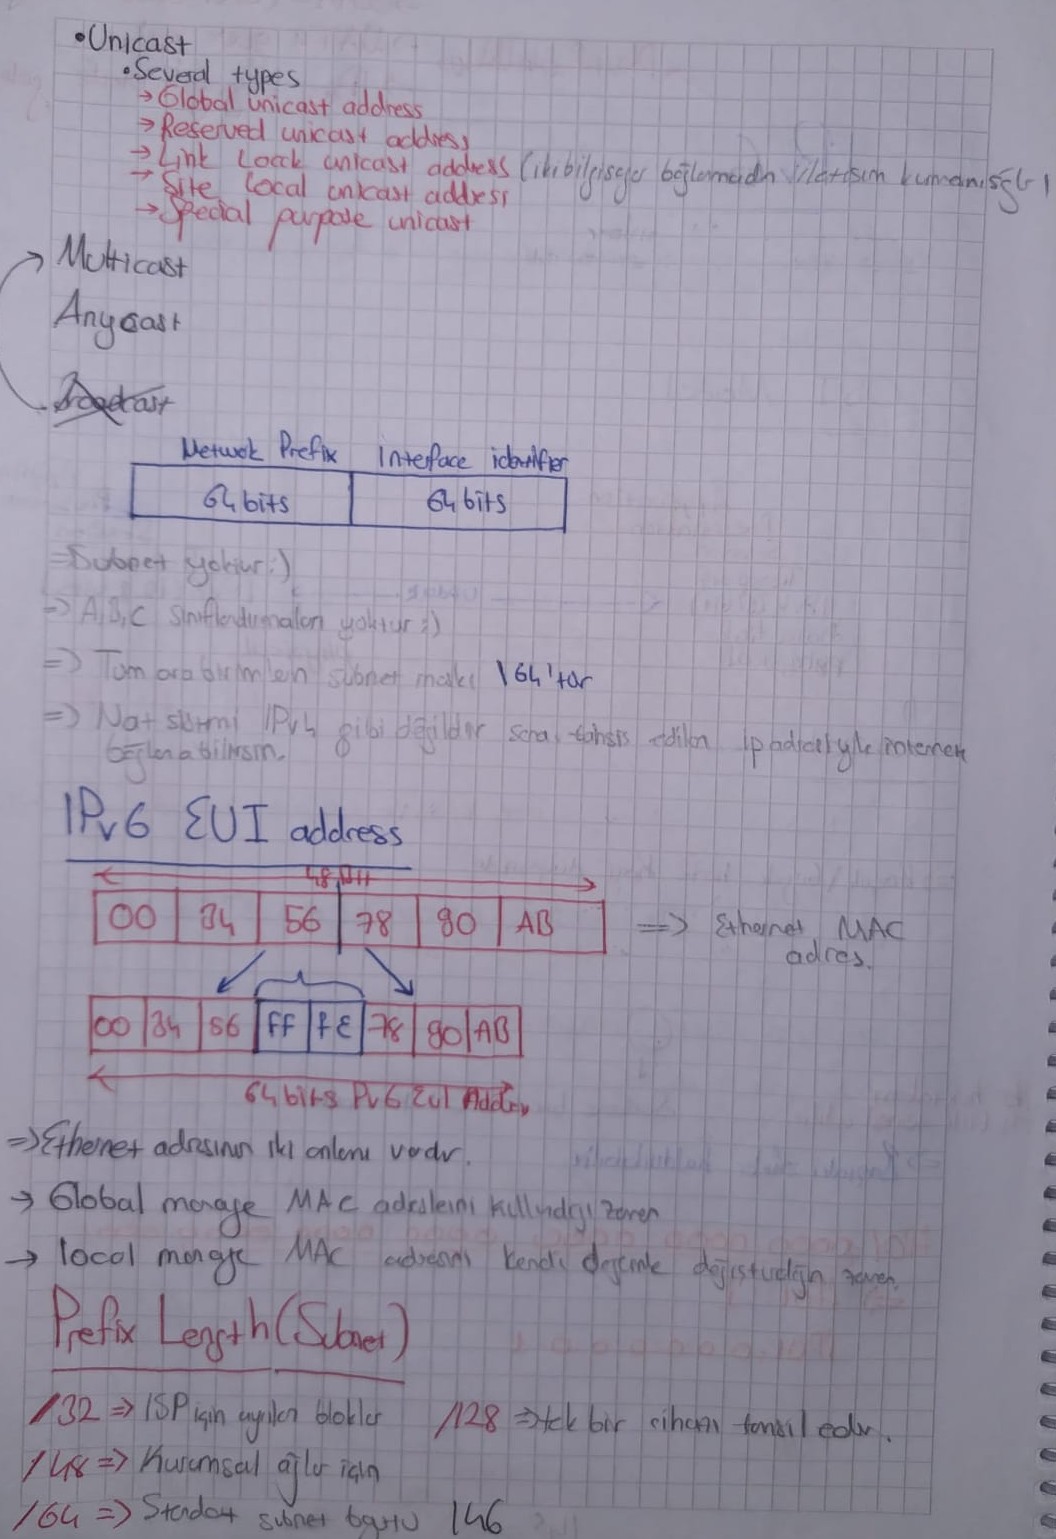 •Unicast
•Several types
→Global unicast address
→Reserved unicast address
→Link Local unicast address (iki bilgisayar bağlamadan iletişim kurmanı sağlar)
→Site local unicast address
→Special purpose unicast
Multicast
Anycast
Broadcast
Network Prefix Interface identifier
64 bits 64 bits
=>Subnet yoktur:)
=> A,B,C sınıflandırmaları yoktur:)
=> Tüm ara birimlerin subnet maskı \64'tür
=> Nat sistemi IPv4 gibi değildir sana tahsis edilen ip adresiyle internete
bağlanabilirsin.
IPv6 EUI address
48 bit
00 34 56 78 90 AB => Ethernet MAC
adres.
00 34 56 FF FE 78 90 AB
64 bits IPv6 EUI Address
=>Ethernet adresinin iki anlamı vardır.
→ Global manage MAC adreslerini kullandığı zaman
→ local manage MAC adresini kendi değerinle değiştirdiğin zaman.
Prefix Length (Subnet)
/32 => ISP için ayrılan bloklar /128 => tek bir cihazı temsil eder.
/48 => Kurumsal ağlar için
/64 => Standart subnet boyutu 146